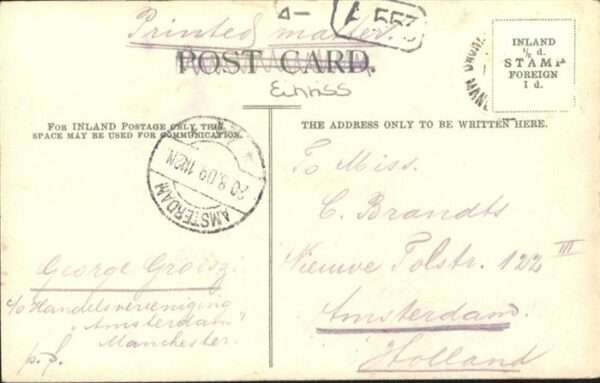 Printed matter
POST CARD.
INLAND
½ d.
STAMP
FOREIGN
1 d.
FOR INLAND POSTAGE ONLY, THIS
SPACE MAY BE USED FOR COMMUNICATION.
THE ADDRESS ONLY TO BE WRITTEN HERE.
AMSTERDAM
20 8.09
To Miss.
C. Brandts
Nieuwe Tolstr. 122 III
Amsterdam.
Holland
George
c/o Handelsvereniging
"Amsterdam"
Manchester.